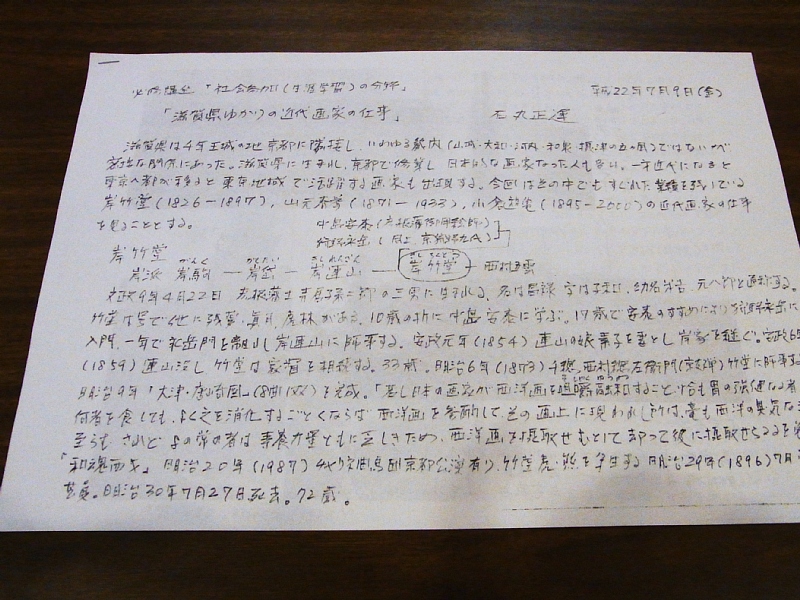 必修講座「社会参加(生涯学習)の分野」 平成22年7月9日(金)
「滋賀県ゆかりの近代画家の仕事」 石丸正運
滋賀県は千年王城の地京都に隣接し、いわゆる畿内(山城・大和・河内・和泉・摂津の五ヶ国)ではないが
密接な関係にあった。滋賀県に生まれ、京都で修業し、日本的な画家となった人も多い。一方近代になると
東京へ都が移ると東京地域で活躍する画家も出現する。今回はその中でもすぐれた業績を残している
岸竹堂(1826-1897)、山元春挙(1871-1933)、小倉遊亀(1895-2000)の近代画家の仕事
を見ることとする。
中島安泰(彦根藩御用絵師)
狩野永岳(同上、京狩野九代)
岸竹堂
がんく がんたい がんれんざん がんちくどう
岸派 岸駒―岸岱―岸連山―岸竹堂―西村五雲
文政9年4月22日 彦根藩士寺居孫二郎の三男に生まれる、名は昌禄 字は子和、幼名は吉、元へ郎と通称する。
竹堂は号で他に残夢、真月、虎林がある、10歳の折に中島安泰に学ぶ。17歳で安泰のすすめにより狩野永岳に
入門、一年で永岳門を離れ岸連山に師事する。安政元年(1854)連山の娘素子を妻とし岸家を継ぐ。安政6年
(1859)連山没し竹堂は家督を相続する。33歳。明治6年(1873)千總、西村總左衛門 竹堂に師事する
明治9年「大津・唐崎図」(8曲1双)を完成。「若し日本の画家が西洋画を咀嚼することは恰も胃の強健なる者
何者を食しても、よく之を消化するごとくならば 西洋画を参酌して、其の画上に現われし所は、毫も西洋の臭気なき
至らむ されど の常の者は 素養力量ともに乏しきため、西洋画を摂取せむとして却って彼に摂取せらるる
「和魂西才」 明治20年(1987) チャリネ曲馬団京都公演有り、竹堂虎・熊を写生する 明治29年(1896)7月
発。明治30年7月27日死去。72歳。